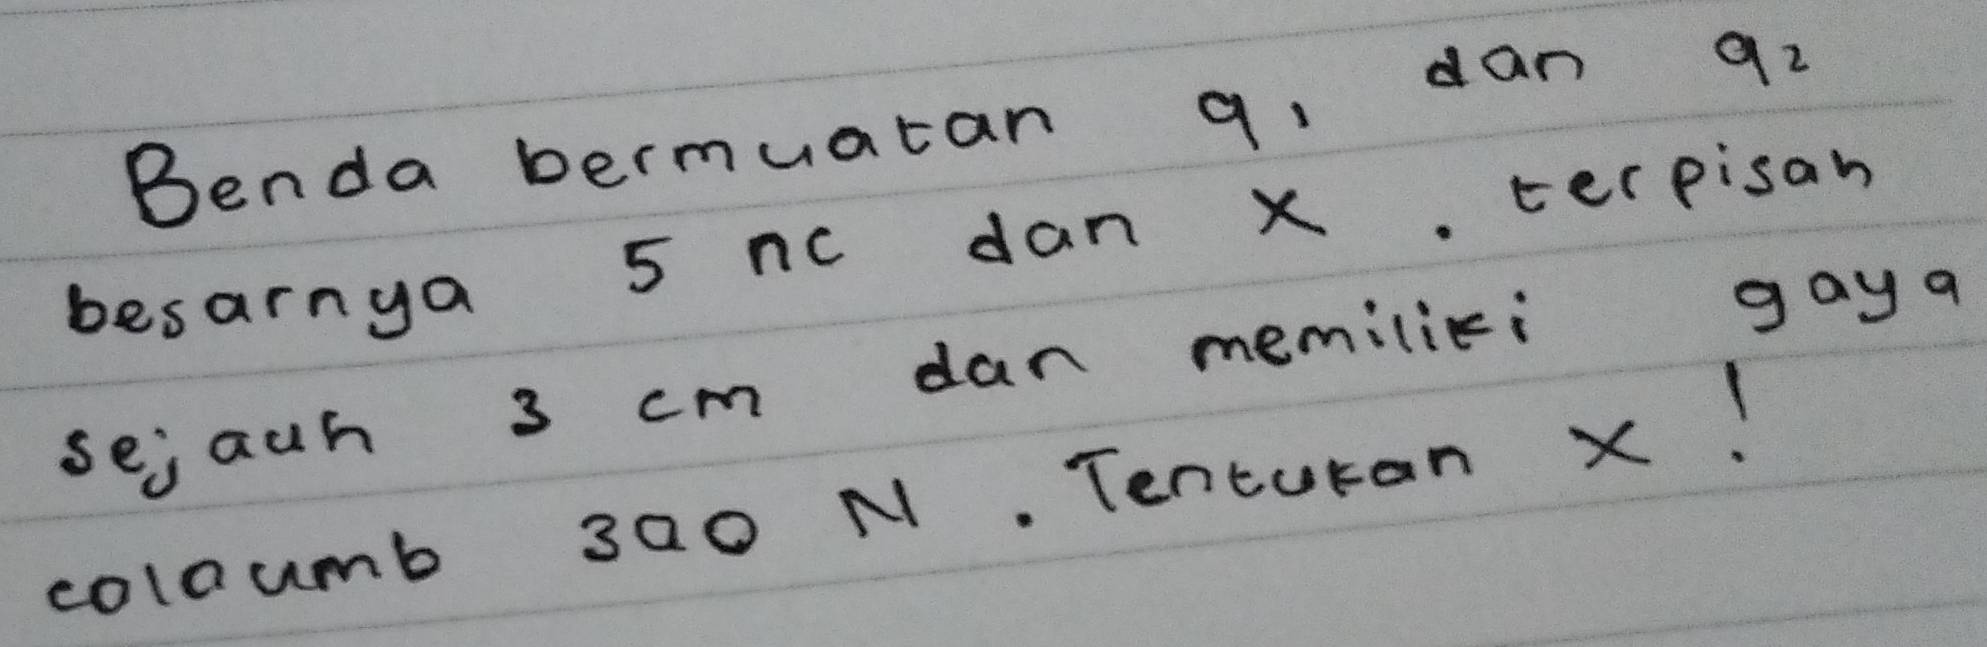 Benda bermuatan q1 dan q2
besarnya 5 nc dan x . terpisah
sejauh 3 cm dan memiliki gaya
coloumb 300 N . Tentukan x !